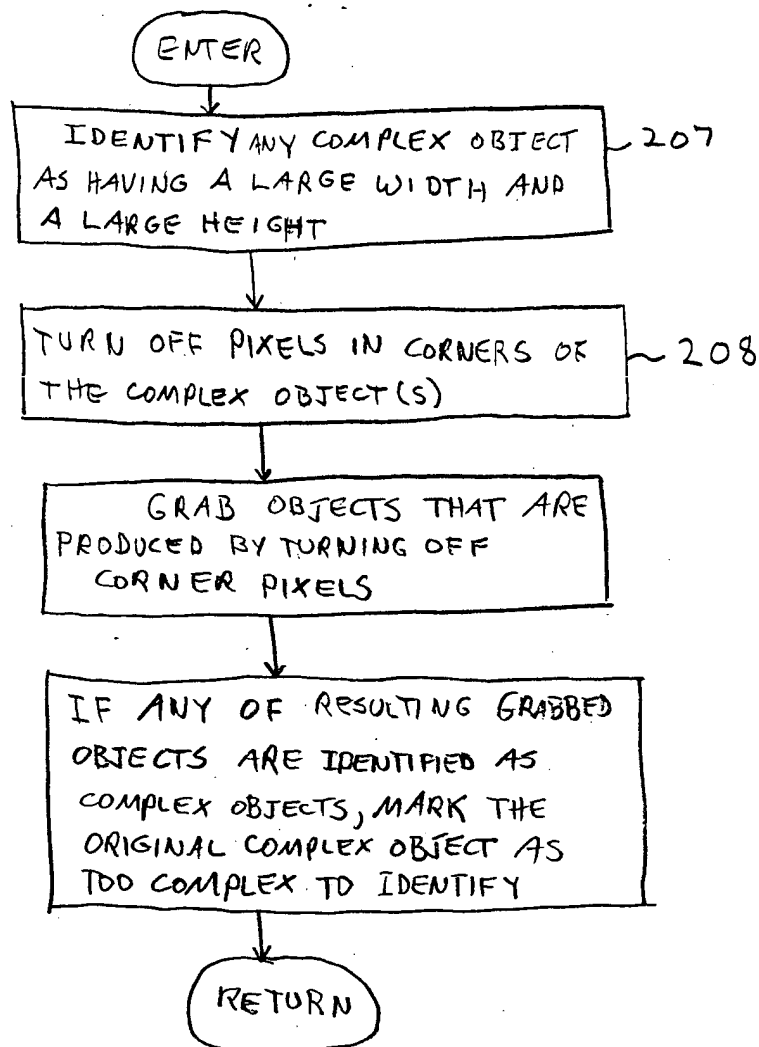 ENTER
IDENTIFY ANY COMPLEX OBJECT
AS HAVING A LARGE WIDTH AND
A LARGE HEIGHT
207
TURN OFF PIXELS IN CORNERS OF
THE COMPLEX OBJECT(S)
208
GRAB OBJECTS THAT ARE
PRODUCED BY TURNING OFF
CORNER PIXELS
IF ANY OF RESULTING GRABBED
OBJECTS ARE IDENTIFIED AS
COMPLEX OBJECTS, MARK THE
ORIGINAL COMPLEX OBJECT AS
TOO COMPLEX TO IDENTIFY
RETURN